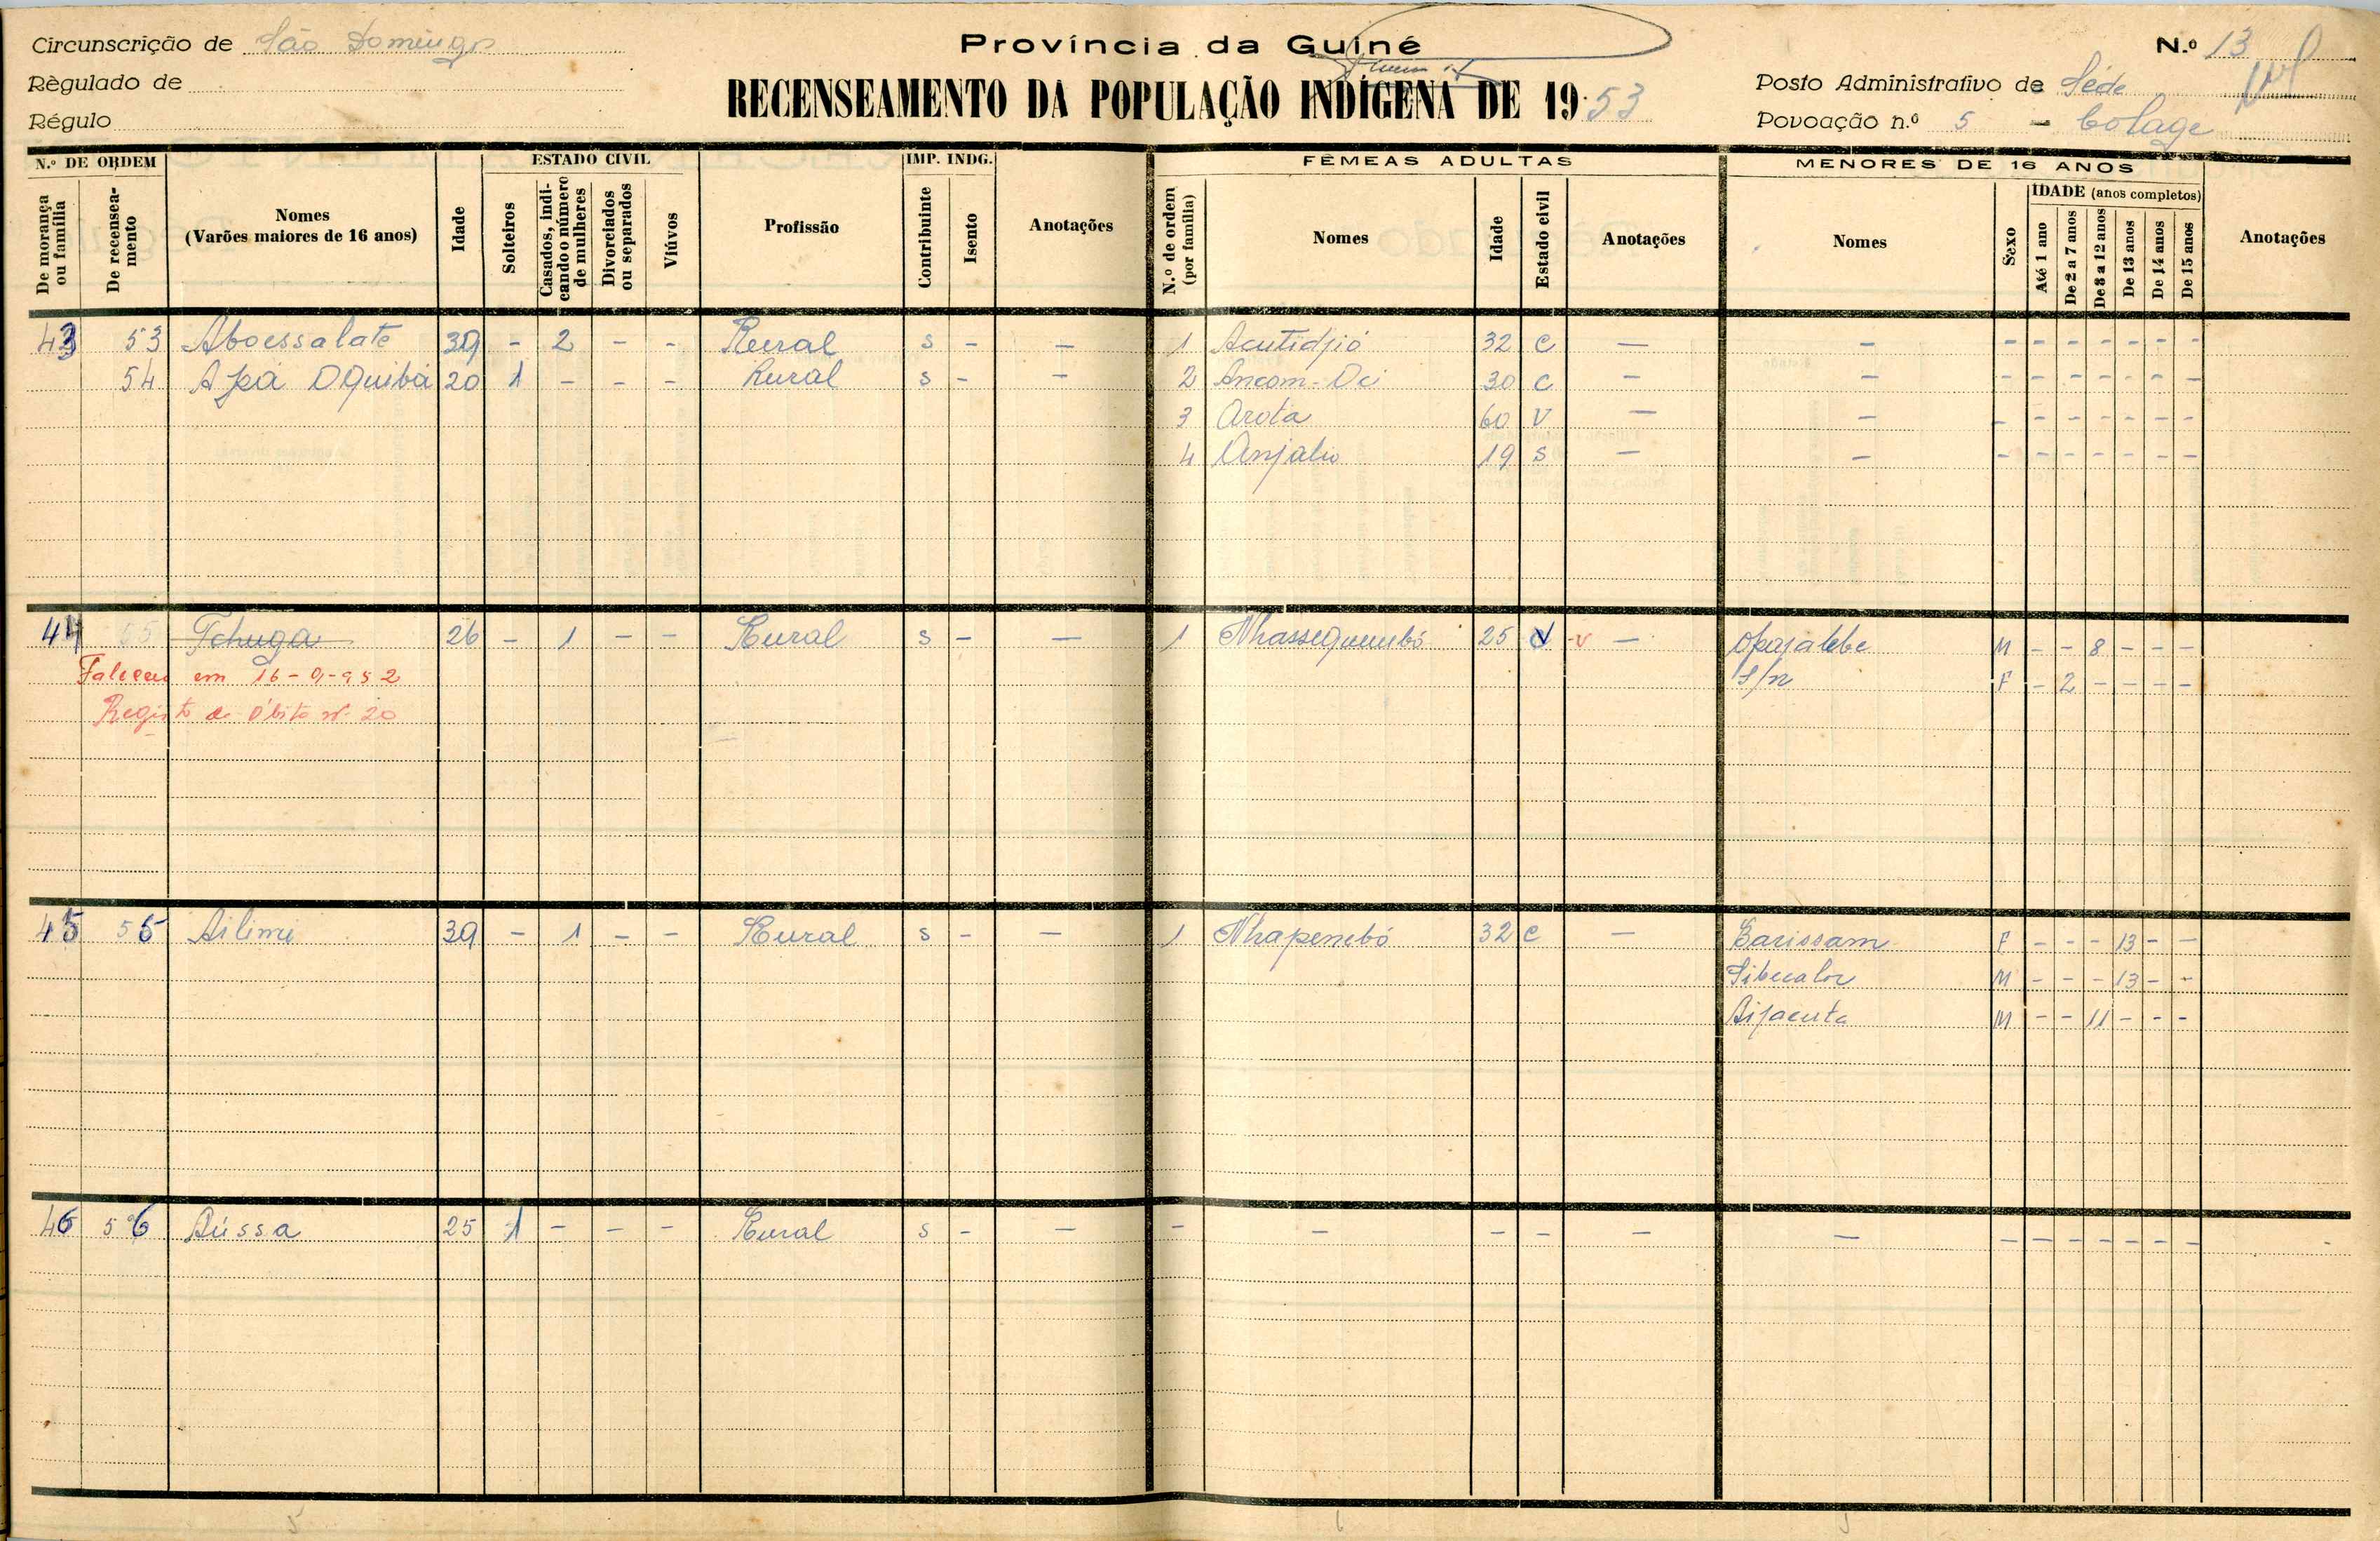 Circunscrição de São Domingos
Règulado de
Régulo
Província da Guiné
RECENSEAMENTO DA POPULAÇÃO INDÍGENA DE 1953
N.º 13
Posto Administrativo de Séde
Povoação n.º 5 - Colage
N.º DE ORDEM
De morança ou família
De recenseamento
Nomes
(Varões maiores de 16 anos)
Idade
ESTADO CIVIL
Solteiros
Casados, indicando o número de mulheres
Divorciados ou separados
Viúvos
Profissão
IMP. INDG.
Contribuinte
Isento
Anotações
FÊMEAS ADULTAS
N.º de ordem (por família)
Nomes
Idade
Estado civil
Anotações
MENORES DE 16 ANOS
Nomes
Sexo
IDADE (anos completos)
Até 1 ano
De 2 a 7 anos
De 8 a 12 anos
De 13 anos
De 14 anos
De 15 anos
Anotações
43 53 Aboessalate 39 - 2 - - Rural s - - 1 Acutidjió 32 C - - - - - - - - -
54 Apá OQuibá 20 1 - - - Rural s - - 2 Ancom-Oci 30 C - - - - - - - - -
3 Arota 60 V - - - - - - - - -
4 Anjaliu 19 S - - - - - - - - -
44 55 Tchuga 26 - 1 - - Rural s - - 1 Nhassequembó 25 V - Opajalebe M - - 8 - - -
Faleceu em 16-9-952 S/n F - 2 - - - -
Registo de Óbito nº 20
45 55 Ailimu 39 - 1 - - Rural s - - 1 Nhapenebó 32 C - Barissam F - - - 13 - -
Sibecalor M - - - 13 - -
Bijacuta M - - 11 - - -
46 56 Aússa 25 1 - - - Rural s - - - - - - - - - - - - - - - -